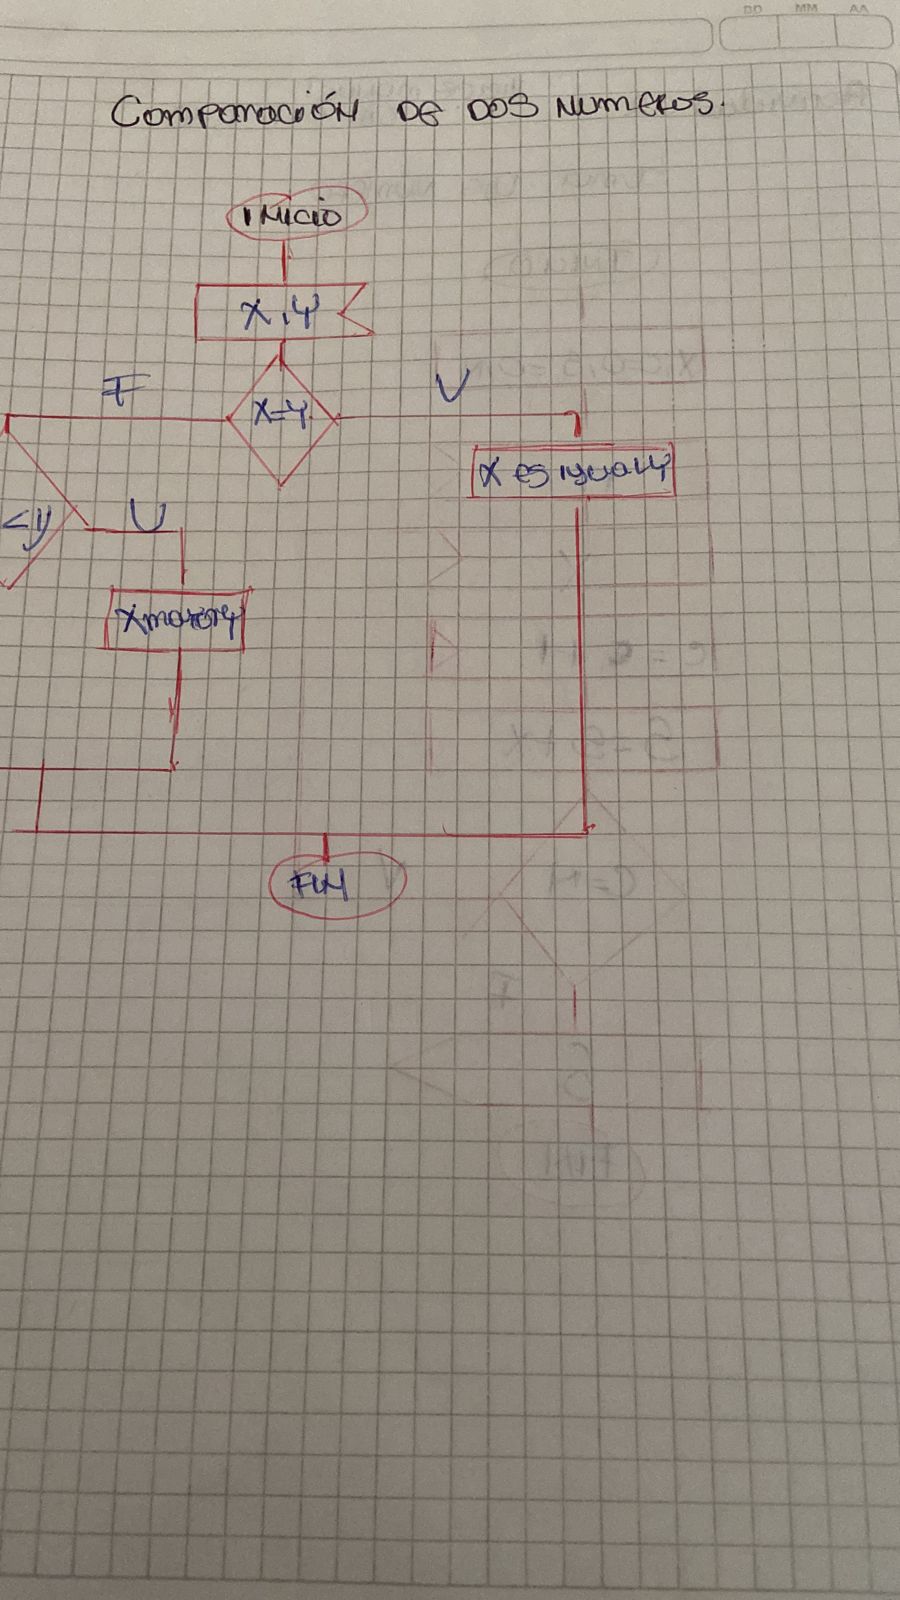 DD MM AA
Comparación DE DOS NUMEROS.
INICIO
X,Y
F
V
X=Y
X es igual Y
<y
V
FIN